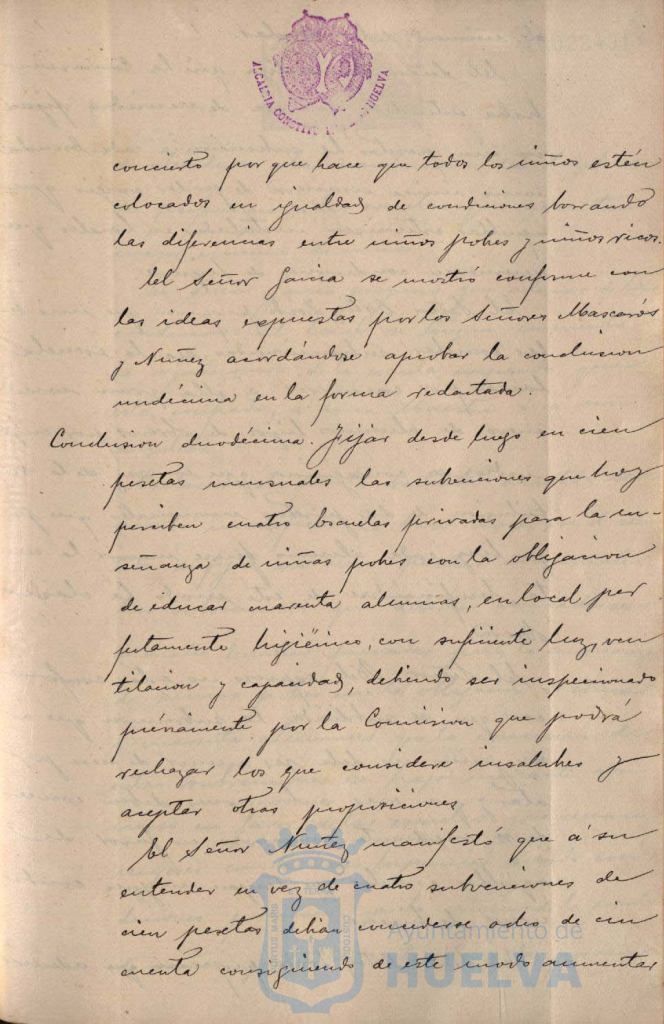 ALCALDIA CONSTIT HUELVA
concierto por que hace que todos los niños estén
colocados en igualdad de condiciones borrando
las diferencias entre niños pobres y niños ricos.
El Señor Garcia se mostró conforme con
las ideas expuestas por los Señores Mascarós
y Nuñez acordándose aprobar la conclusion
undécima en la forma redactada.
Conclusion duodécima. Fijar desde luego en cien
pesetas mensuales las subvenciones que hoy
perciben cuatro Escuelas privadas para la en-
señanza de niñas pobres con la obligacion
de educar cuarenta alumnas, en local per
fectamente higiénico, con suficiente luz, ven
tilacion y capacidad, debiendo ser inspeccionado
préviamente por la Comision que podrá
rechazar los que considere insalubres y
aceptar otras proposiciones
El Señor Nuñez manifestó que á su
entender en vez de cuatro subvenciones de
cien pesetas debian concederse ocho de cin
cuenta consiguiendo de este modo aumentar
Ayuntamiento de
HUELVA